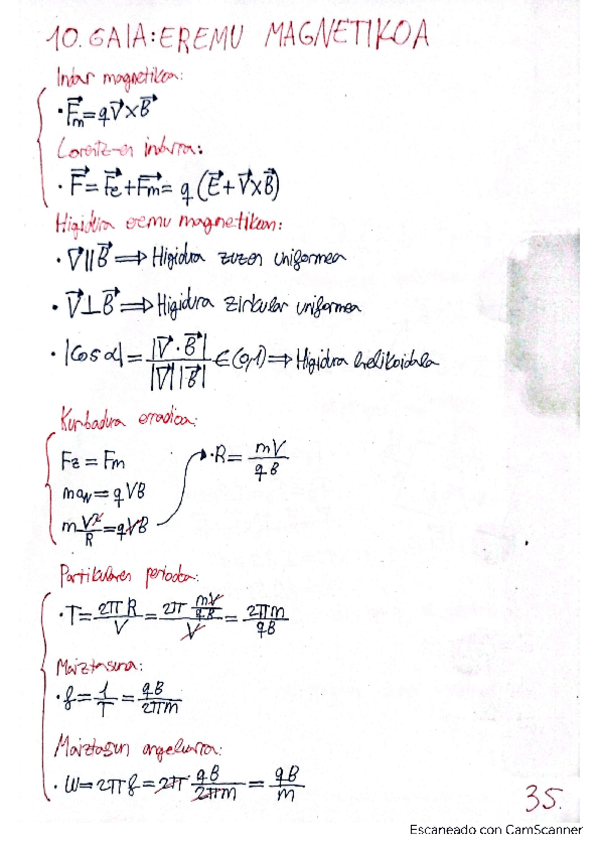 10. GAIA: EREMU MAGNETIKOA
Indar magnetikoa:
· F⃗m = qV⃗×B⃗
Lorentz-en indarra:
· F⃗ = F⃗e + F⃗m = q (E⃗ + V⃗×B⃗)
Higidura eremu magnetikoan:
· V⃗ ∥ B⃗ ⟹ Higidura zuzen uniformea
· V⃗ ⊥ B⃗ ⟹ Higidura zirkular uniformea
· |Cos α| = |V⃗ · B⃗| / |V⃗| |B⃗| ∈ (0,1) ⟹ Higidura helikoidala
Kurbadura erradioa:
Fz = Fm
m aN = q V B
m V²/R = q V B → · R = mV / qB
Partikularen periodoa:
· T = 2π R / V = 2π (mV / qB) / V = 2π m / qB
Maiztasuna:
· f = 1/T = qB / 2π m
Maiztasun angeluarra:
· W = 2π f = 2π · qB / 2π m = qB / m
35.
Escaneado con CamScanner